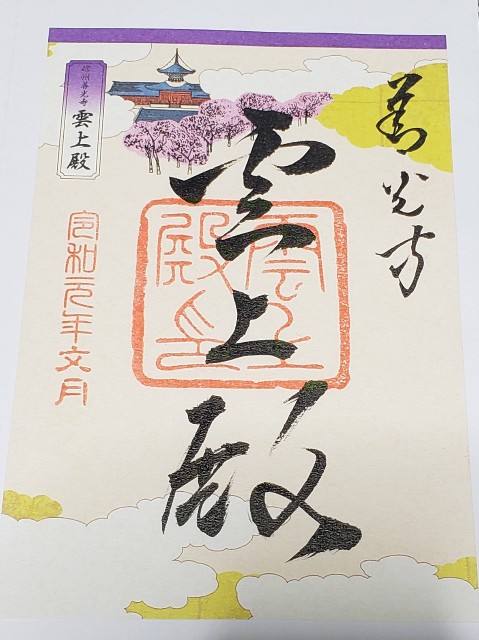 善光寺
雲上殿
雲上殿
信州善光寺
雲上殿
令和元年文月